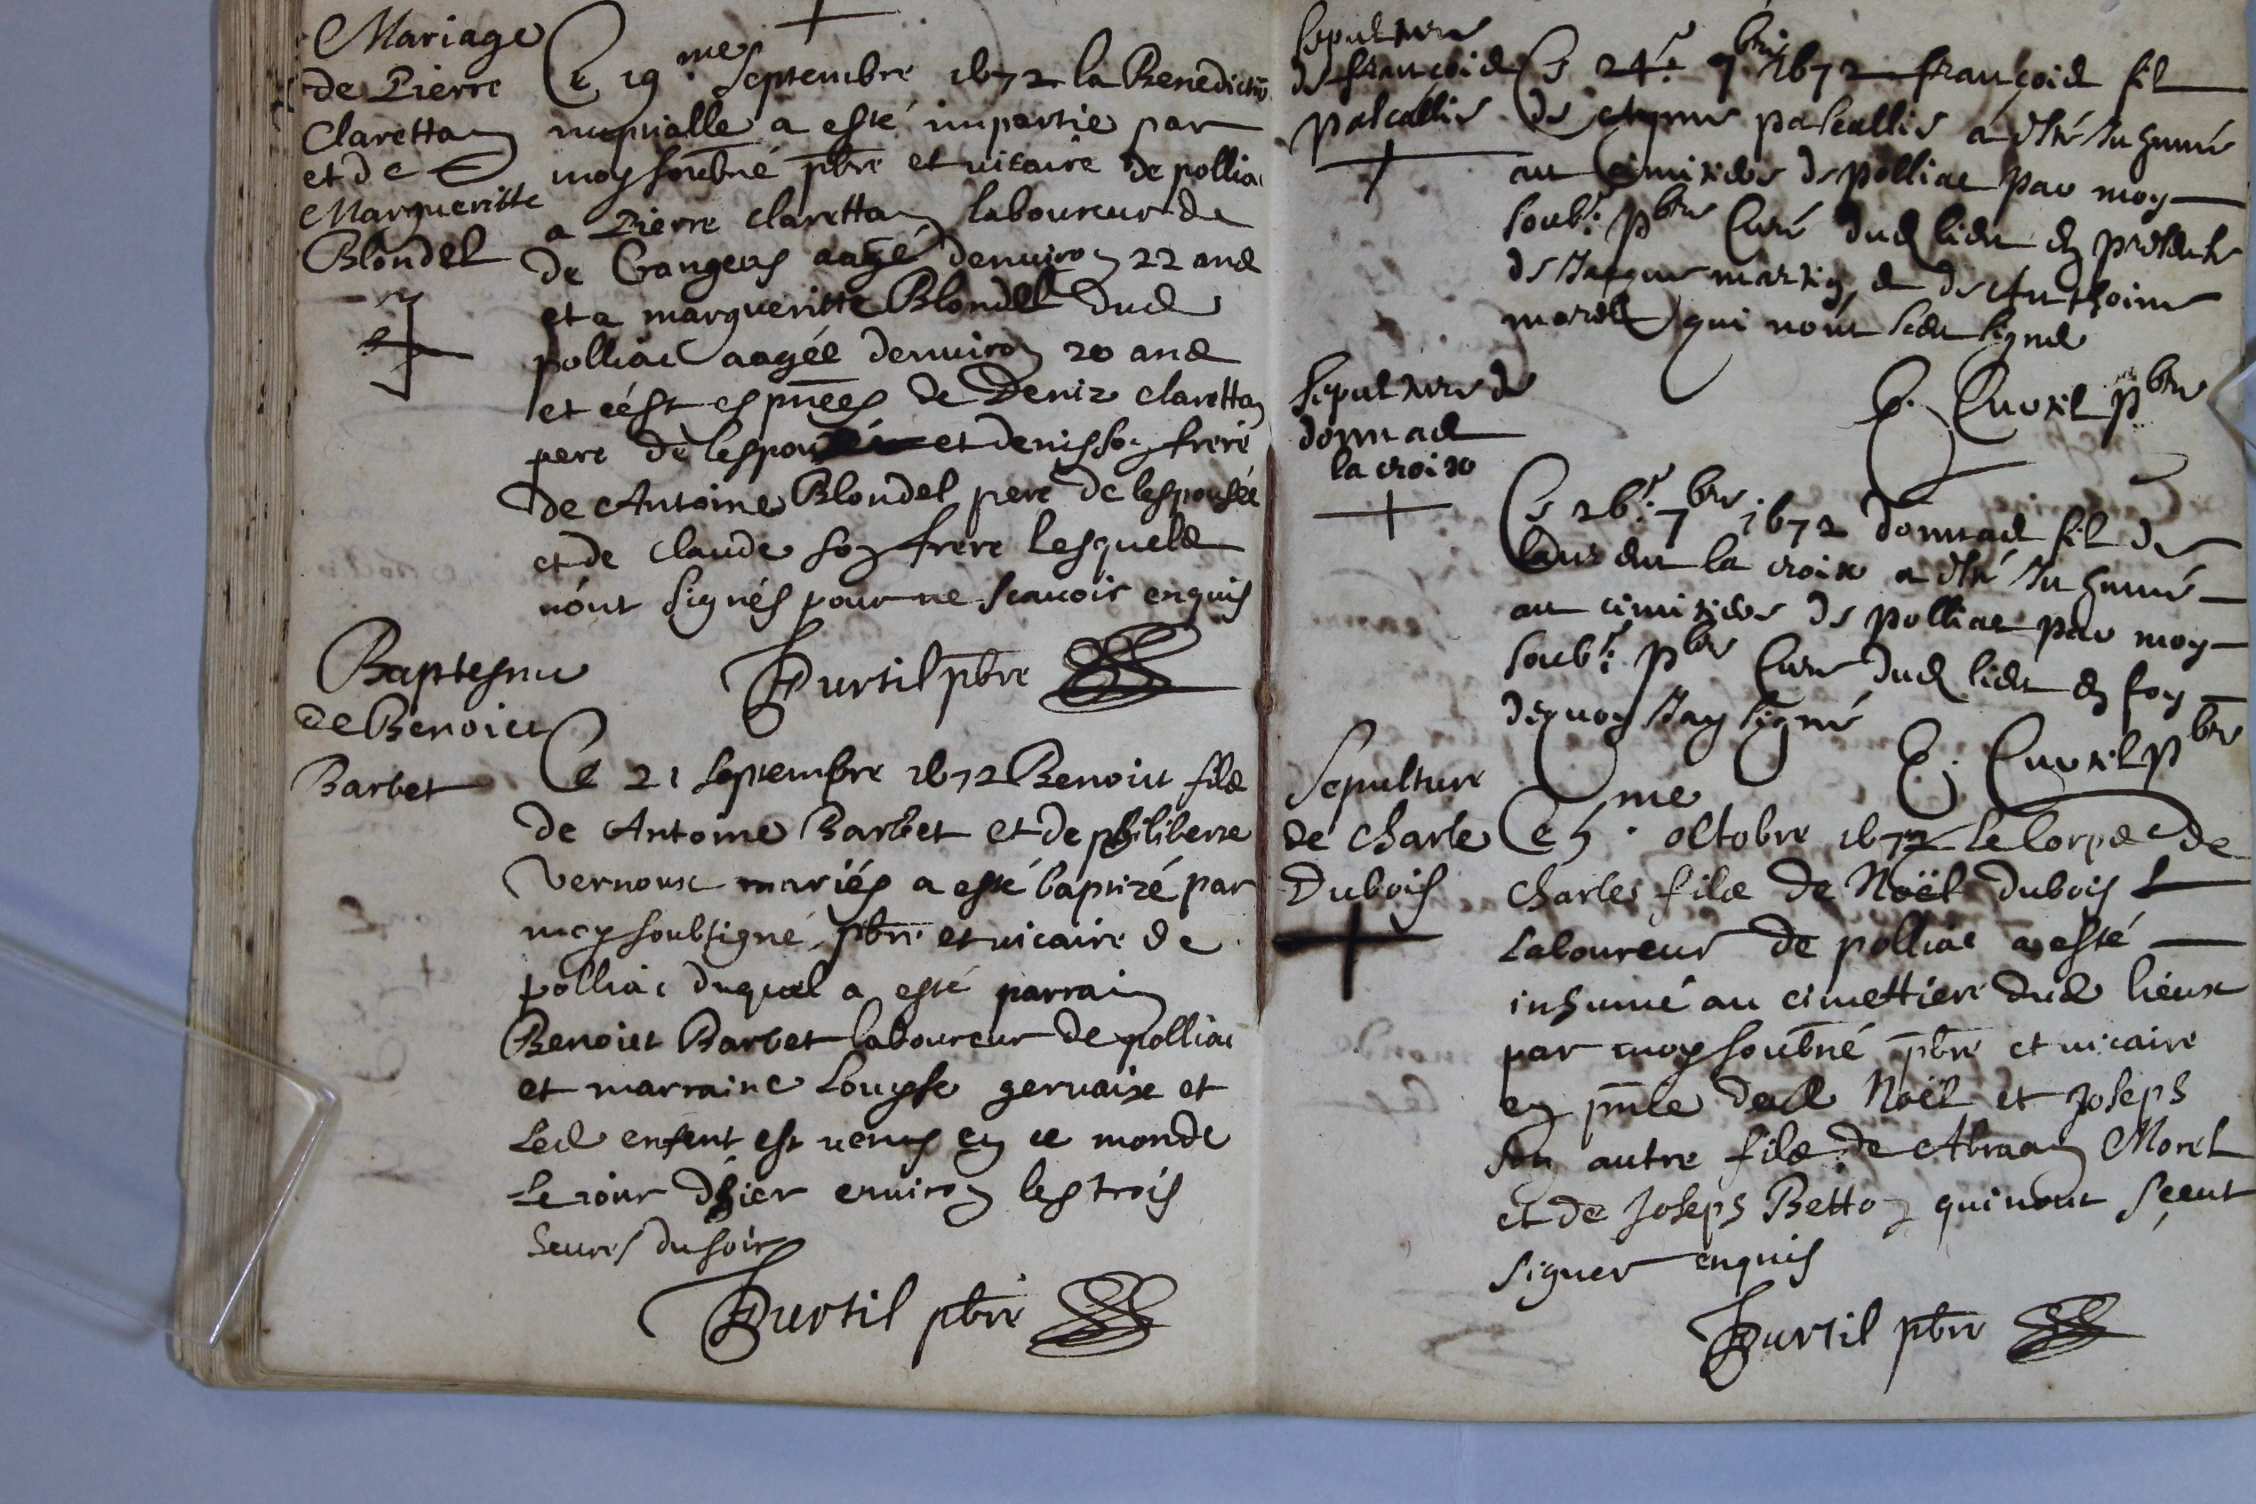 Mariage
de Pierre
Clarettan
et de
Margueritte
Blondel
Ce 19mes Septembre 1672 la Benedictio
nuptialle a esté impartie par
moy soubné pbre et vicaire de pollia
a Pierre clarettan laboureur de
de Crangeas aagé denviron 22 ans
et a margueritte Blondel dud
polliac aagée denviron 20 ans
et cést es pnces de Deniz clarettan
pere de lespou et denis son frere
de Antoine Blondel pere de lespousée
et de Claude son frere lesquels
nónt signés pour ne scavoir enquis
Purtil pbre
Baptesme
de Benoict
Barbet
Ce 21 septembre 1672 Benoict fils
de Antoine Barbet et de philiberte
Vernoux mariés a esté baptizé par
moy soubsigné pbre et vicaire de
polliac duquel a esté parrain
Benoict Barbet laboureur de polliac
et marraine Louyse gervaise et
led enfent est venus en ce monde
le jour dhier environ les trois
heures du soir
Purtil pbre
Sepulture
de françois
pascallis
Ce 24e 7bre 1672 françois fil
de pascallis a esté Inhumé
au Cimitiere de polliac par moy
soubt: pbre Curé dud lieu en presence
de Jacque martin, et de Anthoine
morel qui nont sceu signer
C. Cuvtil pbre
Sepulture de
donnat
la croix
Ce 26e: 7bre 1672 donnat fil de
Laurent la croix a esté Inhumé
au cimitiere de polliac par moy
soubt: pbre Curé dud lieu en foy
dequoy Jay signé
C. Cuvtil pbre
Sepulture
de Charle
Dubois
Ce 5me octobre 1672 le Corps de
Charles fils de Noël dubois
Laboureur de polliac a esté
inhumé au cimettiere dud lieux
par moy soubné pbre et vicaire
en pnce dud Noël et Joseph
son autre fils de Abraan Morel
et de Joseph Betton qui nont sçeut
signer enquis
Purtil pbre